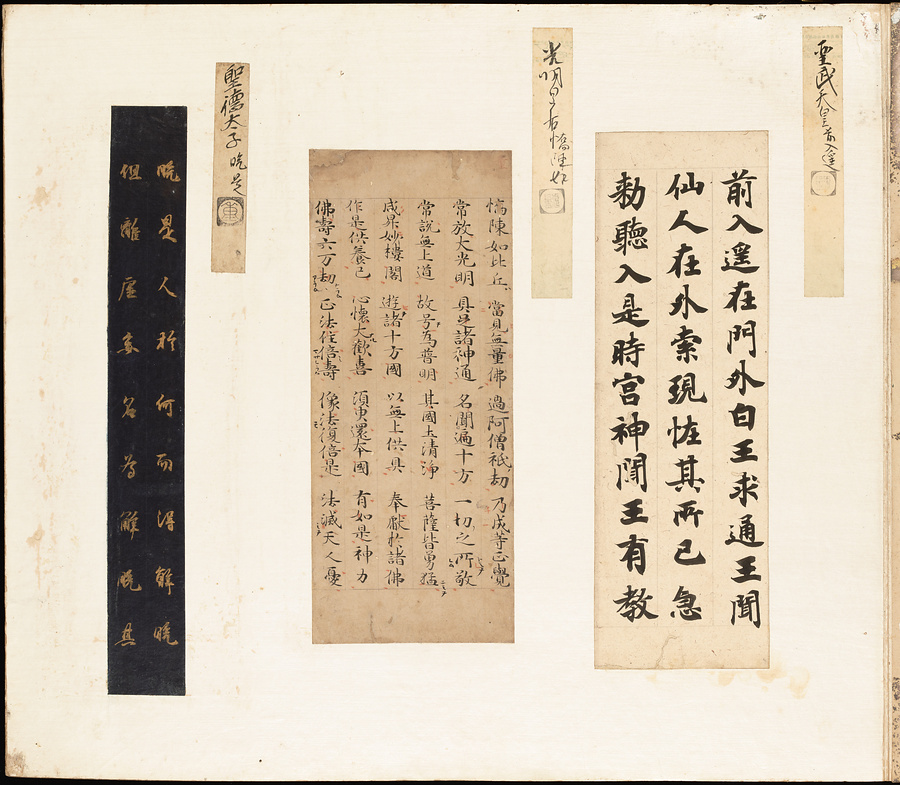 聖武天皇 前入遥
前入遥在門外白王求通王聞
仙人在外索現恠其所已急
勅聽入是時宮神聞王有教
光明皇后 憍陳如
憍陳如比丘 當見無量佛 過阿僧祇劫 乃成等正覺
常放大光明 具足諸神通 名聞遍十方 一切之所敬
常說無上道 故号為普明 其國土清淨 菩薩皆勇猛
咸昇妙樓閣 遊諸十方國 以無上供具 奉獻於諸佛
作是供養已 心懷大歡喜 須臾還本國 有如是神力
佛壽六万劫 正法住倍壽 像法復倍是 法滅天人憂
聖德太子 脱是
脱是人於何而得解脱
但離虛妄名為解脱其